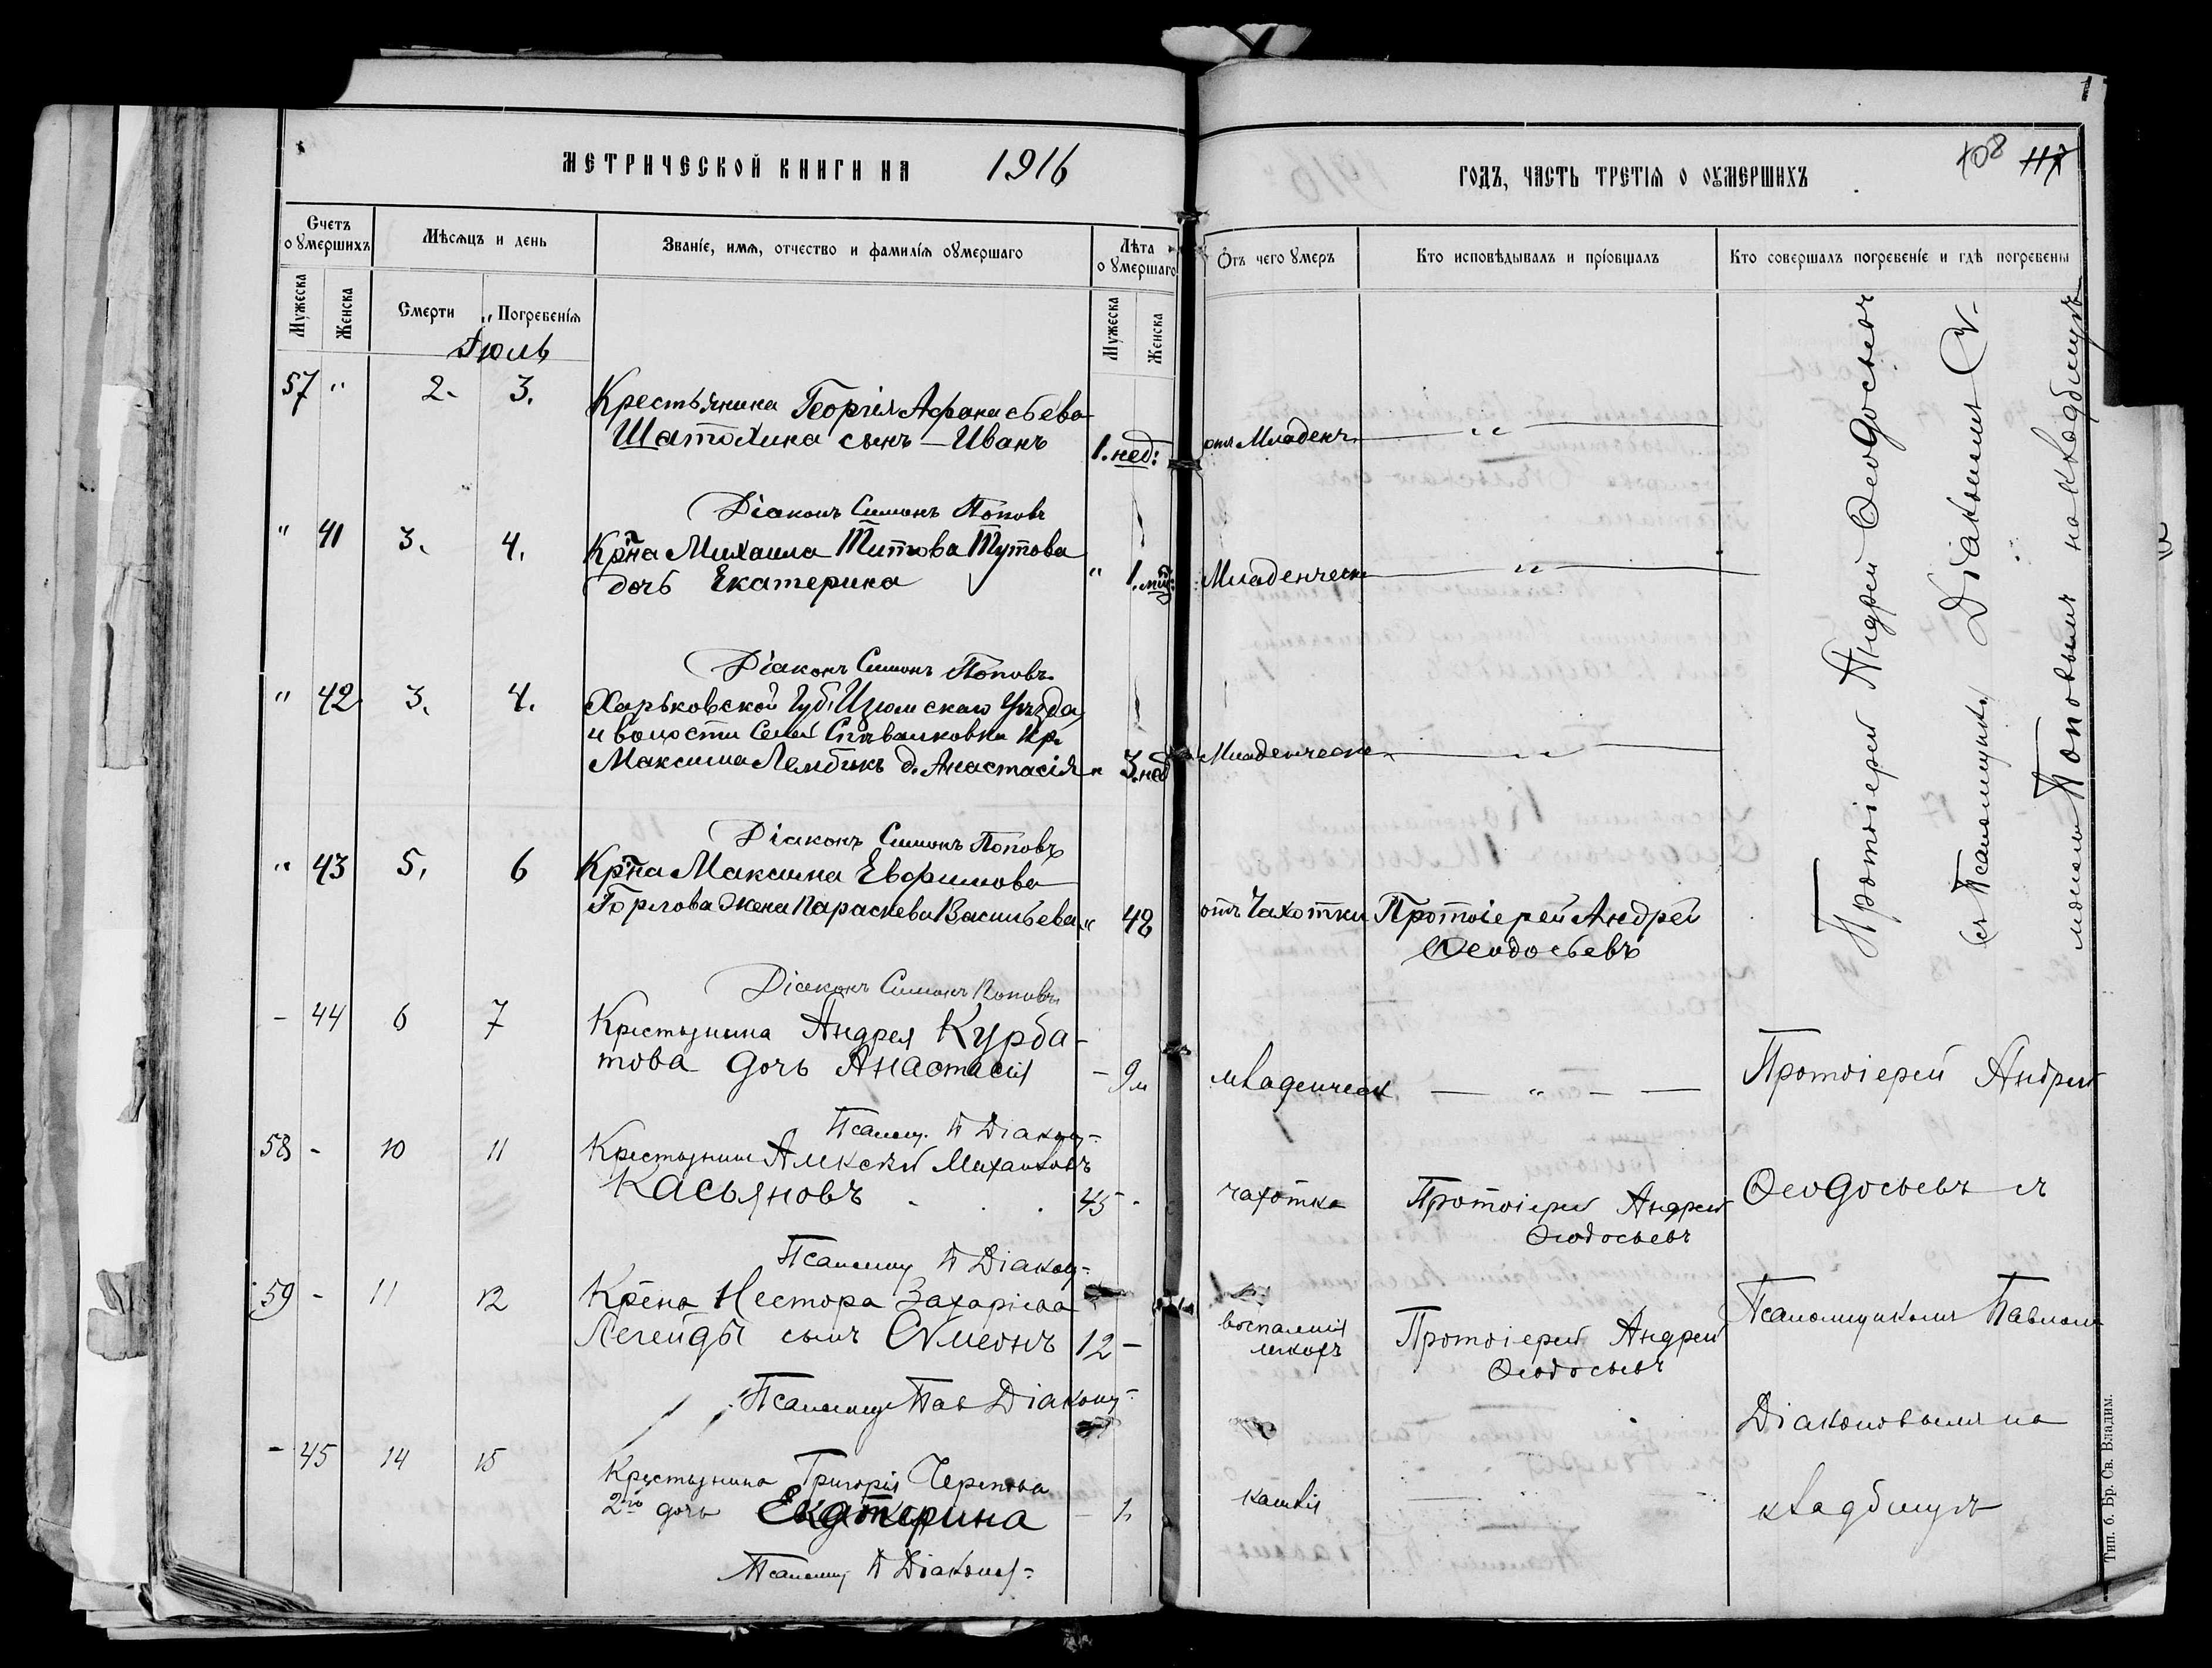 МЕТРИЧЕСКОЙ КНИГИ НА 1916
Счетъ оумершихъ
Мѣсяцъ и день
Званіе, имя, отчество и фамилія оумершаго
Лѣта оумершаго
Мужеска
Женска
Смерти
Погребенія
Мужеска
Женска
Іюль
57 " 2. 3. Крестьянина Георгія Афанасьева
Шатохина сынъ – Иванъ 1. нед:
Діаконъ Симонъ Поповъ
" 41 3. 4. Кр̃на Михаила Титова Тутова
дочь Екатерина "
Діаконъ Симонъ Поповъ
" 42 3. 4. Харьковской Губ. Изюмскаго Уѣзда
и волости Кр.
Максима д. Анастасія " 3. нед
Діаконъ Симонъ Поповъ
" 43 5. 6 Кр̃на Максима Евфимова
Горлова жена Параскева Васильева " 48
Діаконъ Симонъ Поповъ
- 44 6 7 Крестьянина Андрея Курба-
това дочь Анастасія – 9 м
Псаломщ. П Діакон
58 - 10 11 Крестьянинъ Алексѣй Михайловъ
Касьяновъ 45 -
Псаломщ П Діакон
59 - 11 12 Кр̃на Нестора Захаріева
Легейды сынъ Сѵмеонъ 12 –
Псаломщ Пав Діакон
- 45 14 15 Крестьянина Григорія
2го дочь Екатерина – 1
Псаломщ П Діаконов
ГОДЪ, ЧАСТЬ ТРЕТІЯ О ОУМЕРШИХЪ
108 117
Отъ чего умеръ
Кто исповѣдывалъ и пріобщалъ
Кто совершалъ погребеніе и гдѣ погребены
отъ Младенч. "
Младенческ "
Младенческ "
отъ Чахотки Протоіерей Андрей
Ѳеодосьевъ
Протоіерей Андрей Ѳеодосьевъ
съ Псаломщик. Діаконъ С.
Поповымъ на кладбищѣ
младенческ – " – – Протоіерей Андрей
чахотка Протоіерей Андрей
Ѳеодосьевъ
Ѳеодосьевъ съ
воспаленія
легкихъ
Протоіерей Андрей
Ѳеодосьевъ
Псаломщикомъ Павломъ
Діаконовымъ на
кашля
кладбищѣ
Тип. б. Бр. Св. Владим.